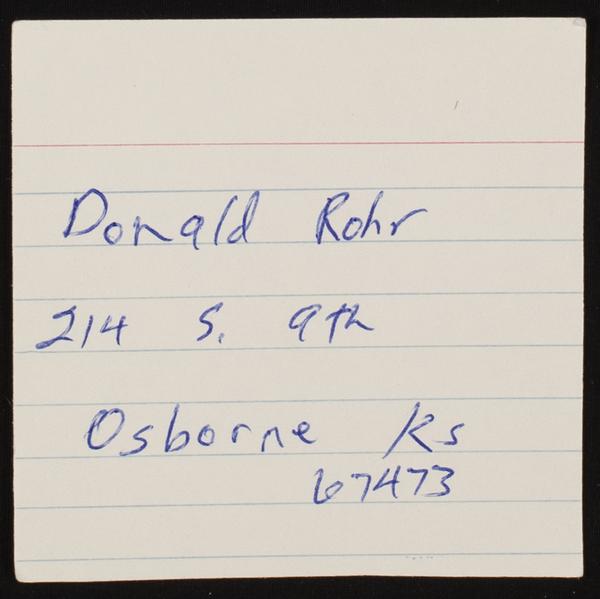 Donald Rohr
214 S. 9th
Osborne Ks
67473